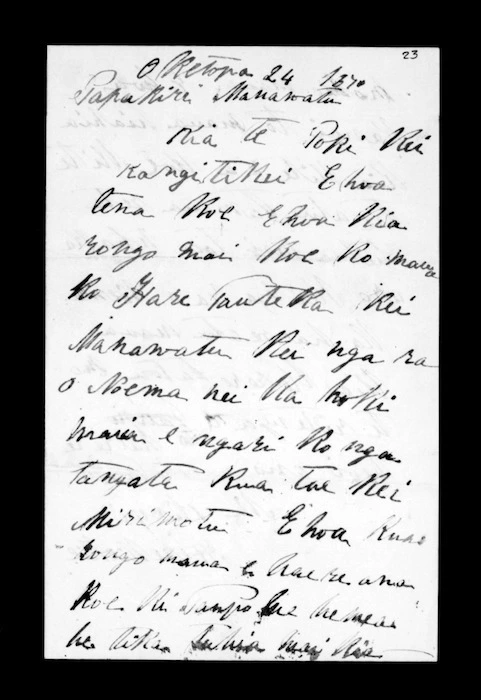 23
Oketopa 24 1870
Papakiri Manawatu
Kia te Poki Kei
Rangitikei E hoa
tena Koe E hoa Kia
rongo mai Koe Ko maua
Ko Hare Tauteka Kei
Manawatu Kei nga ra
o Noema nei Ka hoki
maua e ngari Ko nga
tangata Kua tae Kei
Murimotu E hoa Kua
rongo maua e haere ana
Koe Ki Taupo he mea
he tika Tuhia mai Kia